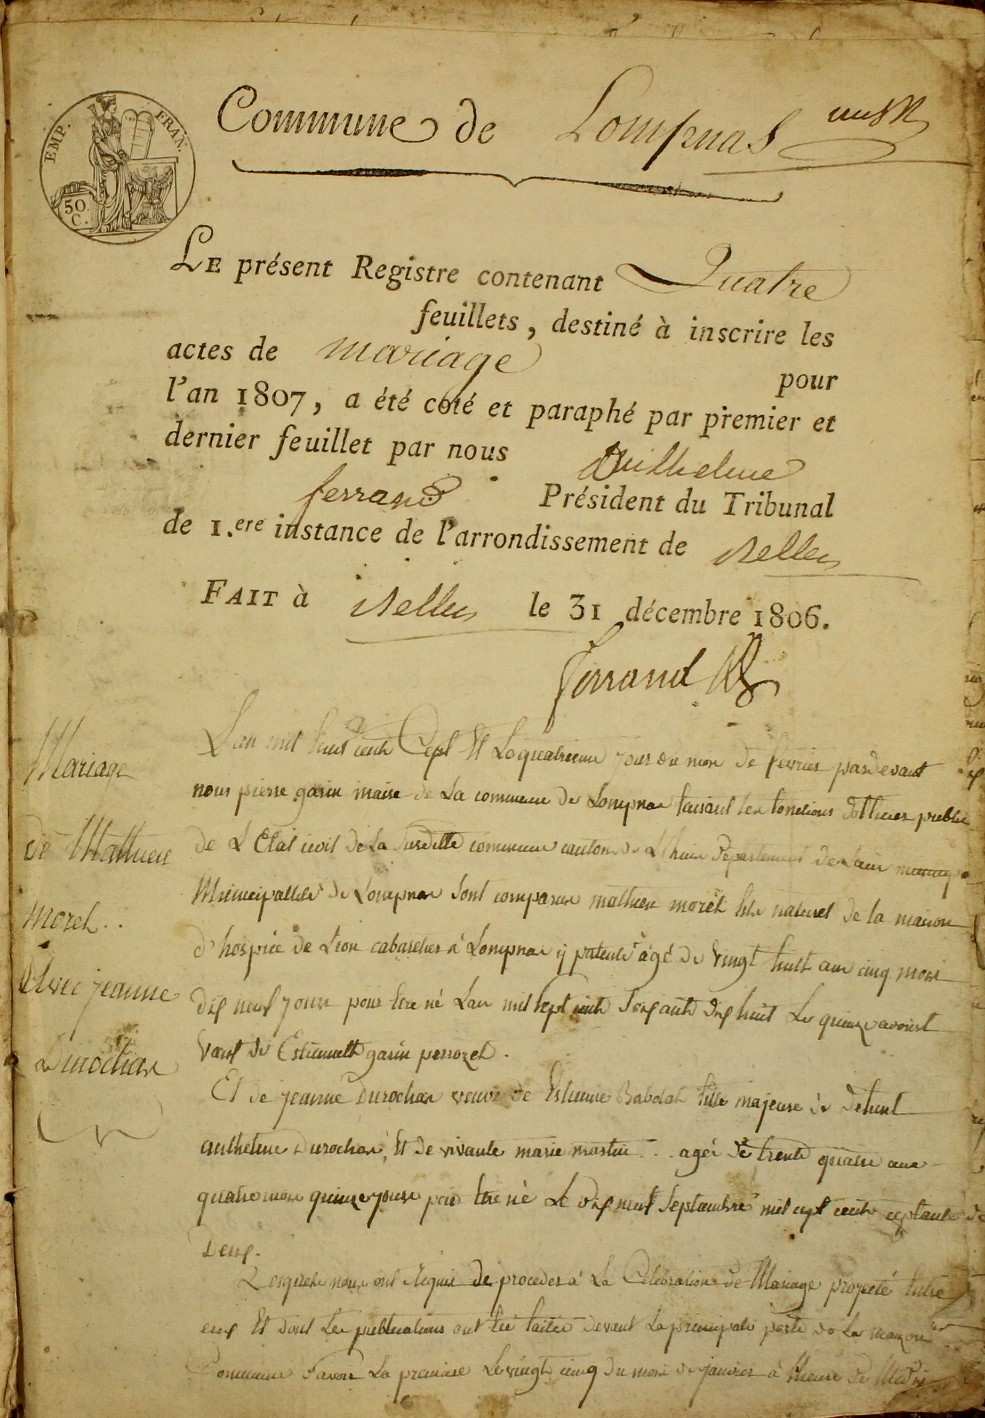 EMP. FRAN.
50 C.
Commune de Lompnas
Le présent Registre contenant Quatre
feuillets, destiné à inscrire les
actes de mariage pour
l'an 1807, a été coté et paraphé par premier et
dernier feuillet par nous Anthelme
ferrand Président du Tribunal
de 1.ere instance de l'arrondissement de Belley
Fait à Belley le 31 décembre 1806.
Ferrand
Mariage
de Mathieu
morel..
Avec jeanne
Durochat
L'an mil huit cent Sept Et Le quatrieme jour du mois de fevrier pardevant
nous pierre garin maire de La commune de Lompnas faisant les fonctions d'officier public
de L'Etat civil de La Susditte commune canton de L'huis Departement de Lain
Municipallité de Lompnas Sont comparus mathieu morel fils naturel de la maison
d'hospice de Lion cabaretier à Lompnas y patenté âgé de vingt huit ans cinq mois
dix neuf jours pour être né L'an mil sept cent soixante dix huit Le quinze avoust
garin perrozet.
Et de jeanne Durochat veuve de Estienne Babolat fille majeure de defunt
anthelme Durochat, Et de vivante marie martin... agée de trente quatre ans
quatre mois quinze jours pour être né Le dix neuf Septambre mil sept cent septante
deux.
Lesquels nous ont Requis de proceder à La Célébration de Mariage projeté entre
eux Et dont Les publications ont été faites devant La principale porte de La maison
Commune Savoir La premiere Le vingt cinq du mois de janvier à l'heure de Midi